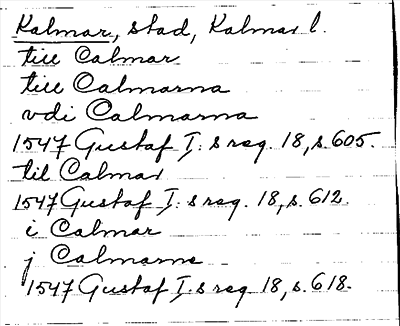 Kalmar, stad, Kalmar l.
till Calmar
till Calmarna
vdi Calmarna
1547 Gustaf I:s reg. 18, s. 605.
til Calmar
1547 Gustaf I:s reg. 18, s. 612.
i Calmar
j Calmarne
1547 Gustaf I:s reg. 18, s. 618.